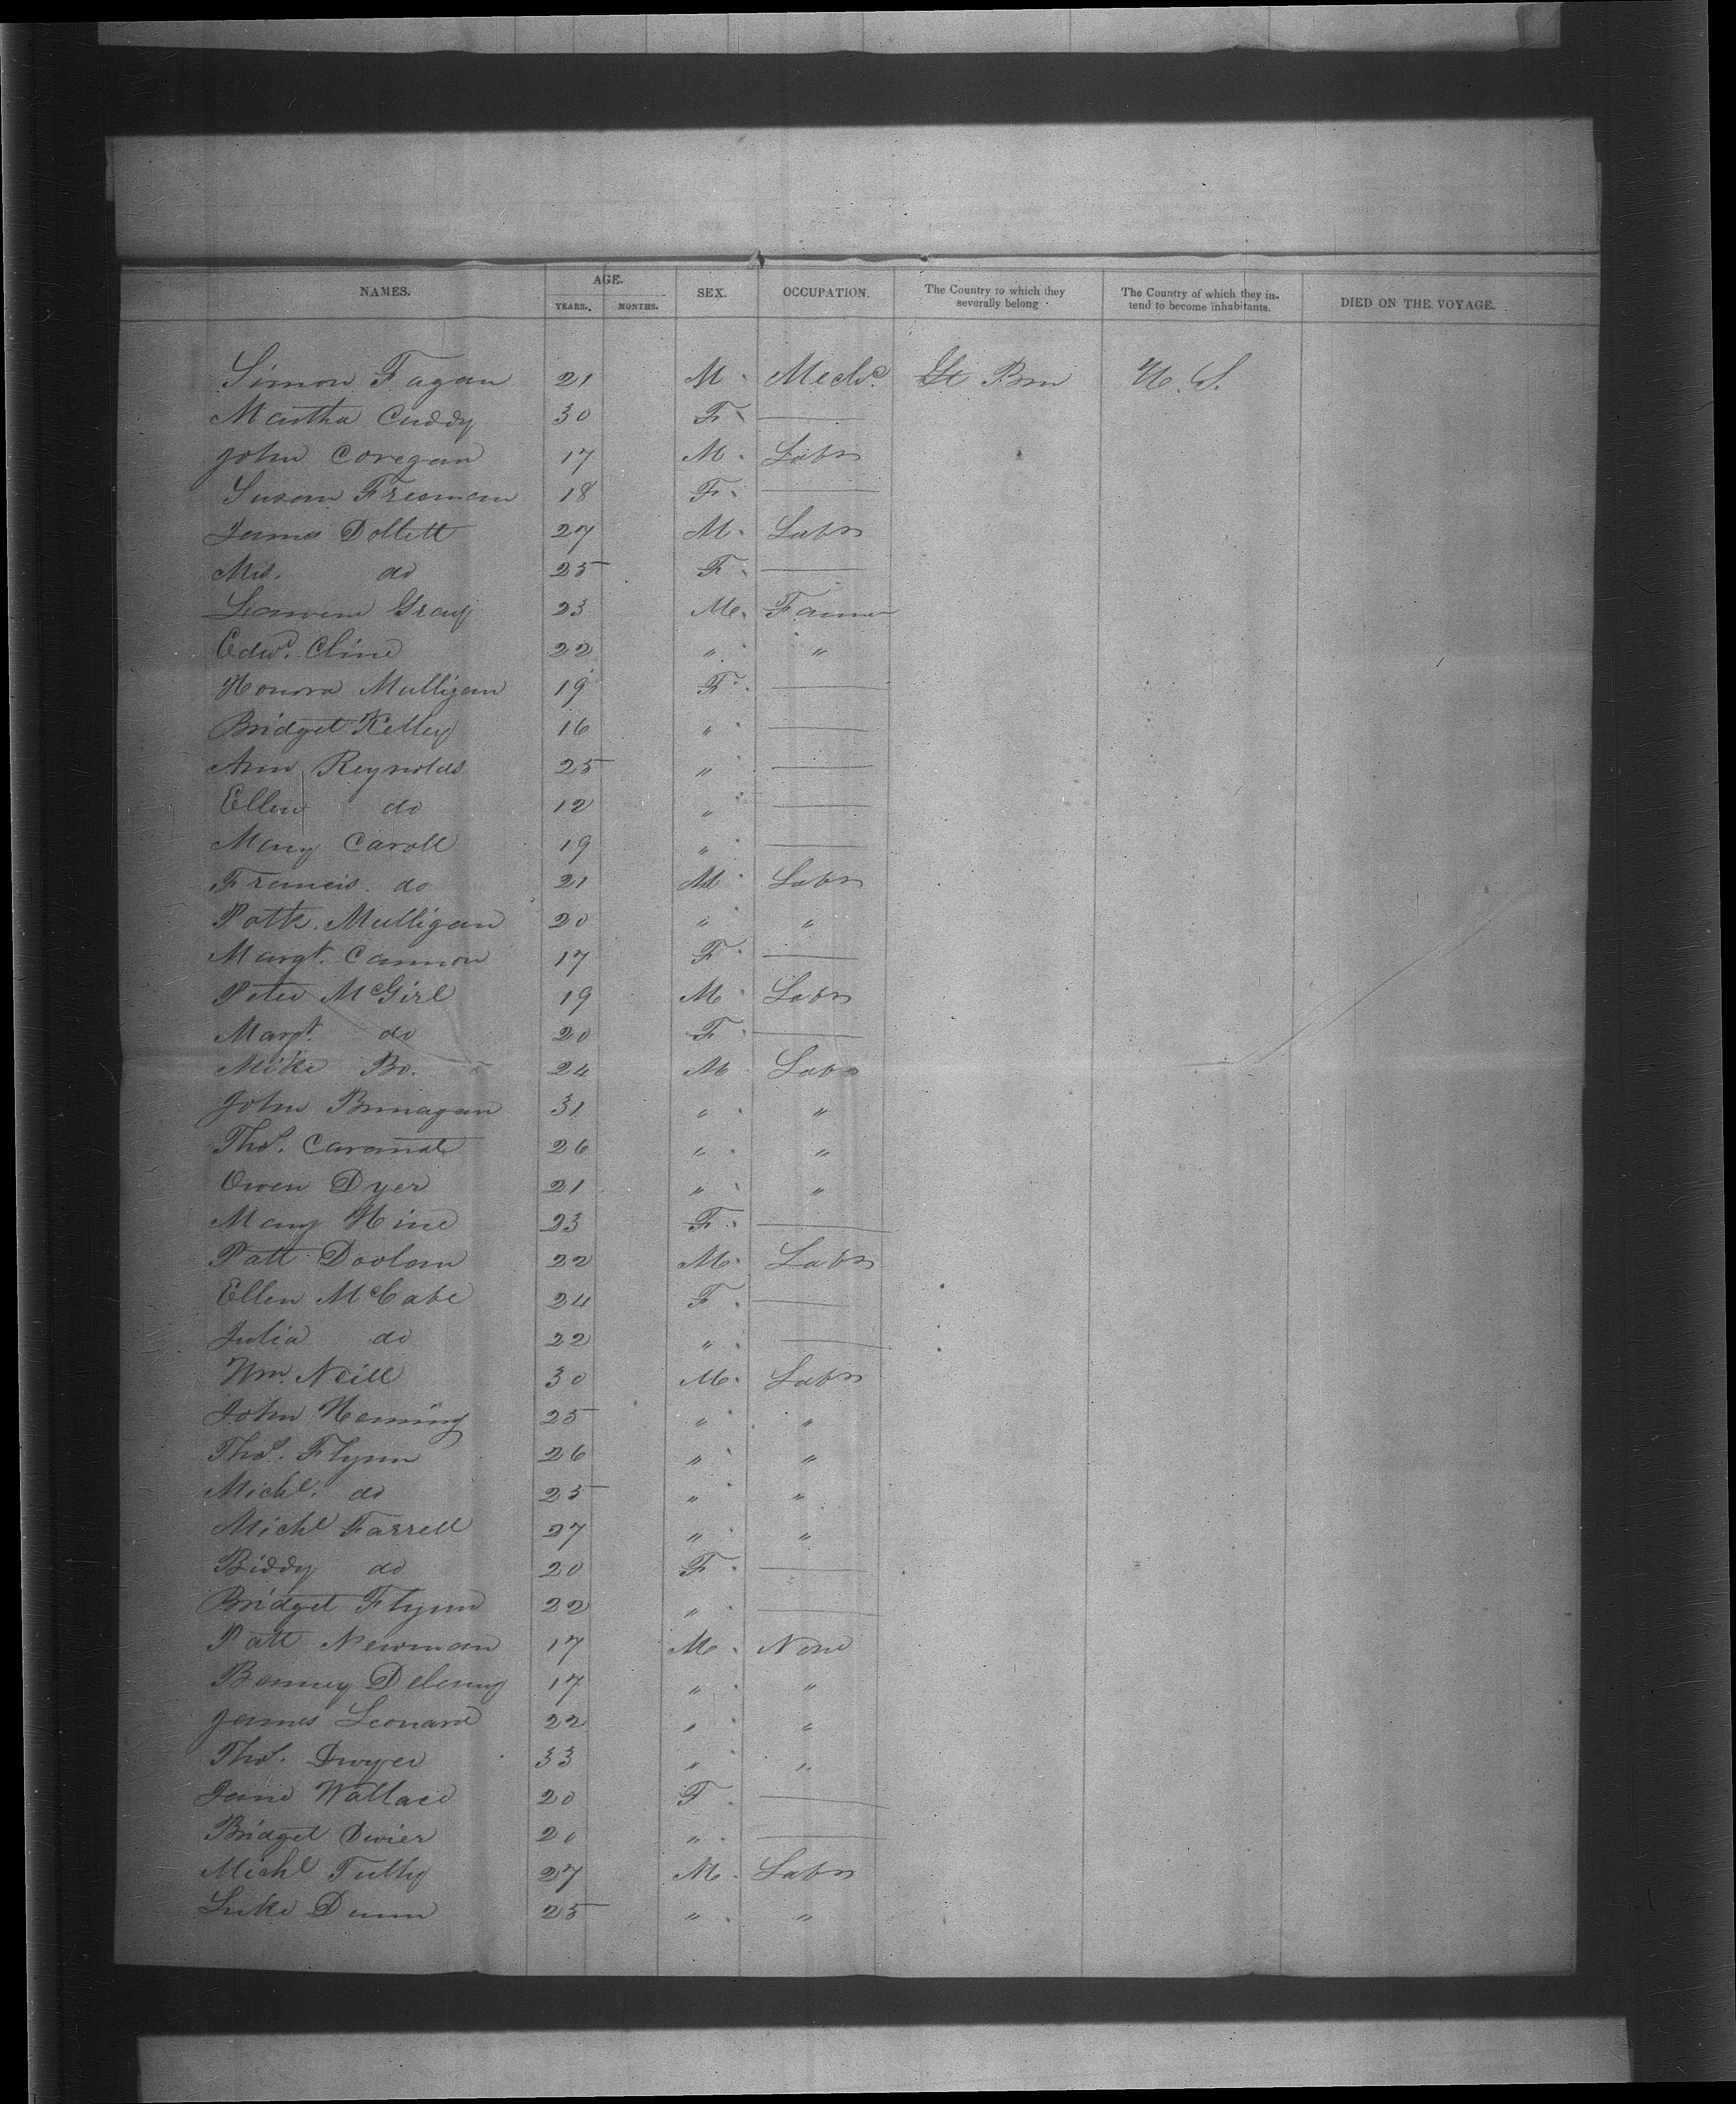 NAMES. AGE. SEX. OCCUPATION. The Country to which they severally belong The Country of which they intend to become inhabitants. DIED ON THE VOYAGE.
YEARS. MONTHS.
Simon Fagan 21 M Mechc. Gt Brn U. S.
Martha Cuddy 30 F —
John Coregan 17 M Labr
Susan Freeman 18 F —
James Dollett 27 M Labr
Mrs. do 25 F —
Gray 23 M Farmer
Edwd. Cline 22 " "
Honora Mulligan 19 F —
Bridget Kelley 16 " —
Ann Reynolds 25 " —
Ellen do 12 " —
Mary Caroll 19 " —
Francis do 21 M Labr
Pattk. Mulligan 20 " "
Margt. Cannon 17 F —
Peter McGirl 19 M Labr
Margt. do 20 F —
Mike Do. 24 M Labr
John 31 " "
Thos. 26 " "
Owen Dyer 21 " "
Mary Hine 23 F —
Patt Doolan 22 M Labr
Ellen McCabe 24 F —
Julia do 22 " —
Wm. Neill 30 M Labr
John Heming 25 " "
Thos. Flynn 26 " "
Michl. do 25 " "
Michl Farrell 27 " "
Biddy do 20 F —
Bridget Flynn 22 " —
Patt Newman 17 M None
Barney 17 " "
James Leonard 22 " "
Thos. Dwyer 33 " "
Jane Wallace 20 F —
Bridget Dwier 20 " —
Michl Tully 27 M Labr
Luke Dunn 25 " "